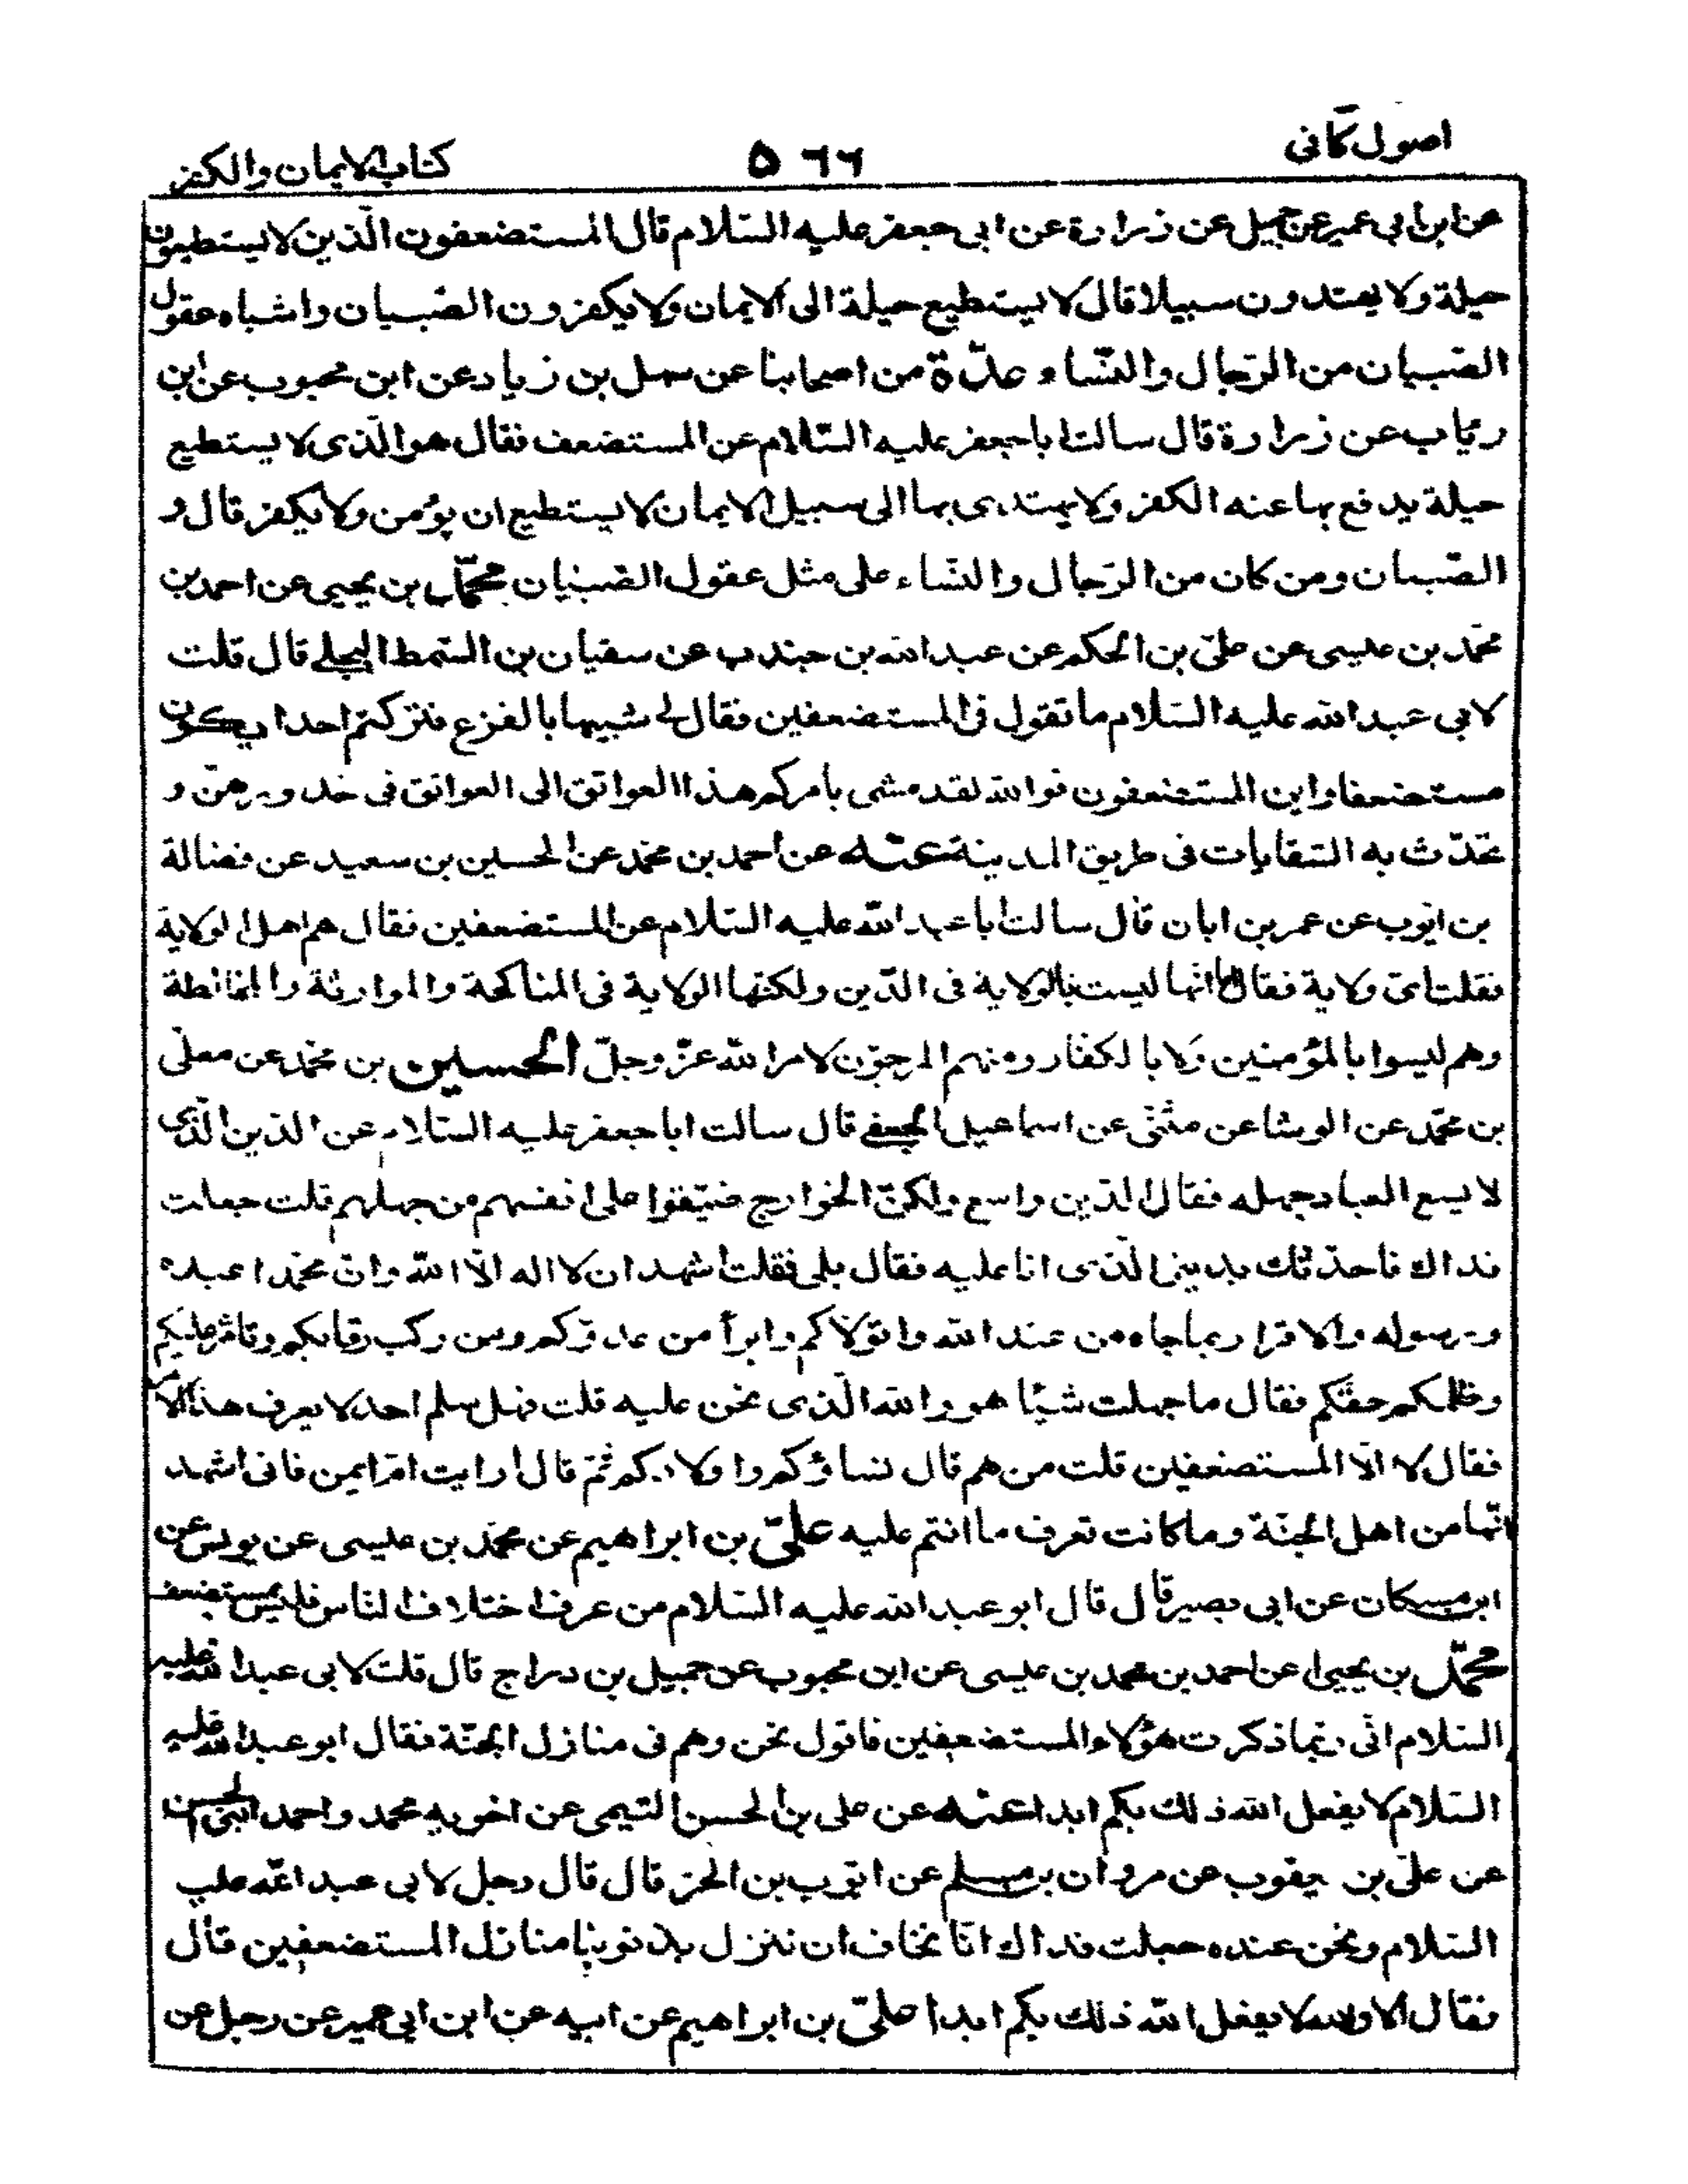 اصول كافى
٥٦٦
كتاب الايمان والكفر
عن ابن ابى عمير عن جميل عن زرارة عن ابى جعفر عليه السّلام قال المستضعفون الّذين لا يستطيعون
حيلة ولا يهتدون سبيلا قال لا يستطيع حيلة الى الايمان ولا يكفرون الصّبيان واشباه عقول
الصّبيان من الرّجال والنّساء عدّة من اصحابنا عن سهل بن زياد عن ابن محبوب عن ابن
رئاب عن زرارة قال سالت ابا جعفر عليه السّلام عن المستضعف فقال هو الّذى لا يستطيع
حيلة يدفع بها عنه الكفر ولا يهتدى بها الى سبيل الايمان لا يستطيع ان يؤمن ولا يكفر قال و
الصّبيان ومن كان من الرّجال والنّساء على مثل عقول الصّبيان محمّد بن يحيى عن احمد بن
محمّد بن عيسى عن علىّ بن الحكم عن عبد الله بن جندب عن سفيان بن السّمط البجلى قال قلت
لابى عبد الله عليه السّلام ما تقول فى المستضعفين فقال لى شبيها بالفزع فتركتم احدا يكون
مستضعفا واين المستضعفون فوالله لقد مشى بامركم هذا العواتق الى العواتق فى خدورهنّ و
تحدّث به السّقايات فى طريق المدينة عنه عن احمد بن محمّد عن الحسين بن سعيد عن فضالة
بن ايّوب عن عمر بن ابان قال سالت ابا عبد الله عليه السّلام عن المستضعفين فقال هم اهل الولاية
فقلت اىّ ولاية فقال اما انّها ليست بالولاية فى الدّين ولكنّها الولاية فى المناكحة والموارثة والمخالطة
وهم ليسوا بالمؤمنين ولا بالكفّار ومنهم المرجوّن لامر الله عزّ وجلّ الحسين بن محمّد عن معلّى
بن محمّد عن الوشا عن مثنّى عن اسماعيل الجعفى قال سالت ابا جعفر عليه السّلام عن الدين الّذى
لا يسع العباد جهله فقال الدّين واسع ولكنّ الخوارج ضيّقوا على انفسهم من جهلهم قلت جعلت
فداك فاحدّثك بدينى الّذى انا عليه فقال بلى فقلت اشهد ان لا اله الّا الله وانّ محمّدا عبده
ورسوله والاقرار بما جاء من عند الله واتولّاكم وابرأ من عدوّكم ومن ركب رقابكم وتامّر عليكم
وظلمكم حقّكم فقال ما جهلت شيئا هو والله الّذى نحن عليه قلت فهل سلم احد لا يعرف هذا الامر
فقال لا الّا المستضعفين قلت من هم قال نساؤكم واولادكم ثمّ قال ارايت امّ ايمن فانى اشهد
انّها من اهل الجنّة وما كانت تعرف ما انتم عليه علىّ بن ابراهيم عن محمّد بن عيسى عن يونس عن
ابن مسكان عن ابى بصير قال قال ابو عبد الله عليه السّلام من عرف اختلاف النّاس فليس بمستضعف
محمّد بن يحيى عن احمد بن محمد بن عيسى عن ابن محبوب عن جميل بن دراج قال قلت لابى عبد الله عليه
السّلام انّى ربّما ذكرت هؤلاء المستضعفين فاقول نحن وهم فى منازل الجنّة فقال ابو عبد الله عليه
السّلام لا يفعل الله ذلك بكم ابدا عنه عن على بن الحسن التيمى عن اخويه محمد واحمد ابنى الحسن
عن علىّ بن يعقوب عن مروان بن مسلم عن ايّوب بن الحرّ قال قال رجل لابى عبد الله عليه
السّلام ونحن عنده جعلت فداك انّا نخاف ان ننزل بذنوبنا منازل المستضعفين قال
فقال لا والله لا يفعل الله ذلك بكم ابدا علىّ بن ابراهيم عن ابيه عن ابن ابى عمير عن رجل عن